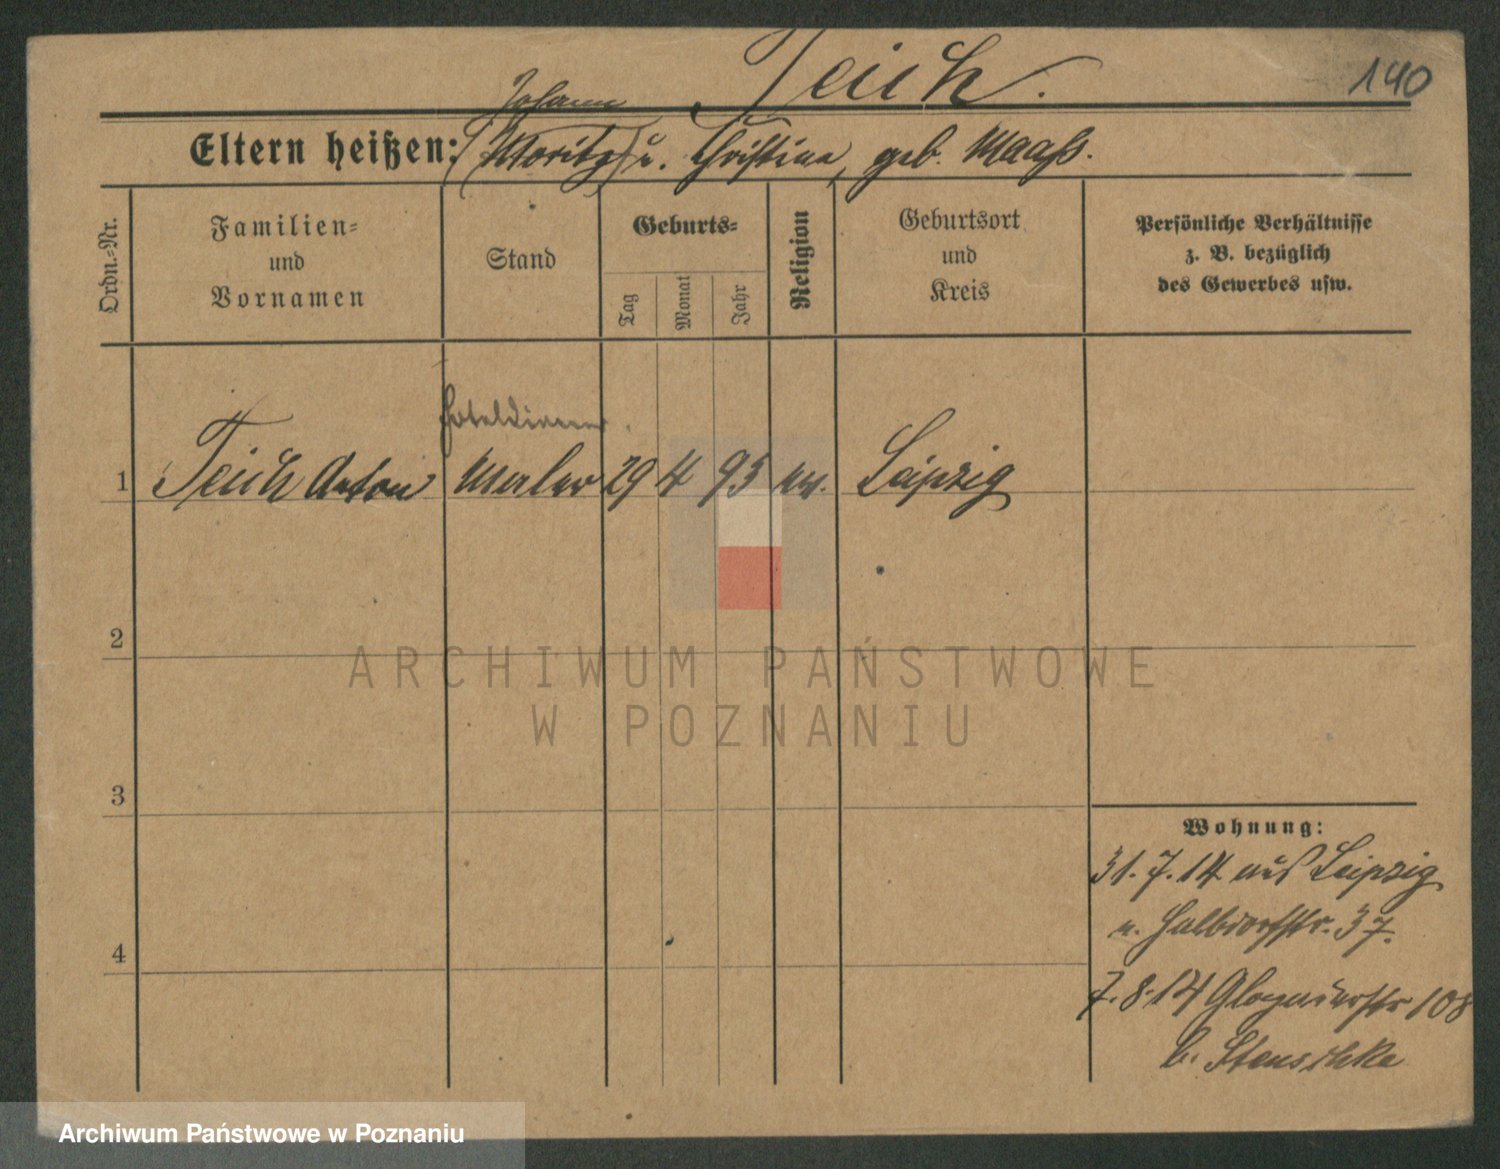 Teich.
140
Johann
Eltern heißen: (Moritz) u. Christine, geb. Maaß.
Ordn.-Nr.
Familien-
und
Vornamen
Stand
Geburts-
Tag
Monat
Jahr
Religion
Geburtsort
und
Kreis
Persönliche Verhältnisse
z. B. bezüglich
des Gewerbes usw.
Hoteldiener
1 Teich Anton Maler 29 4 95 ev. Leipzig
2
ARCHIWUM PAŃSTWOWE
W POZNANIU
3
Wohnung:
31. 7. 14 aus Leipzig
n. Halbdorfstr. 37.
4
7. 8. 14 Glogauerstr 108
b. Stenschke
Archiwum Państwowe w Poznaniu